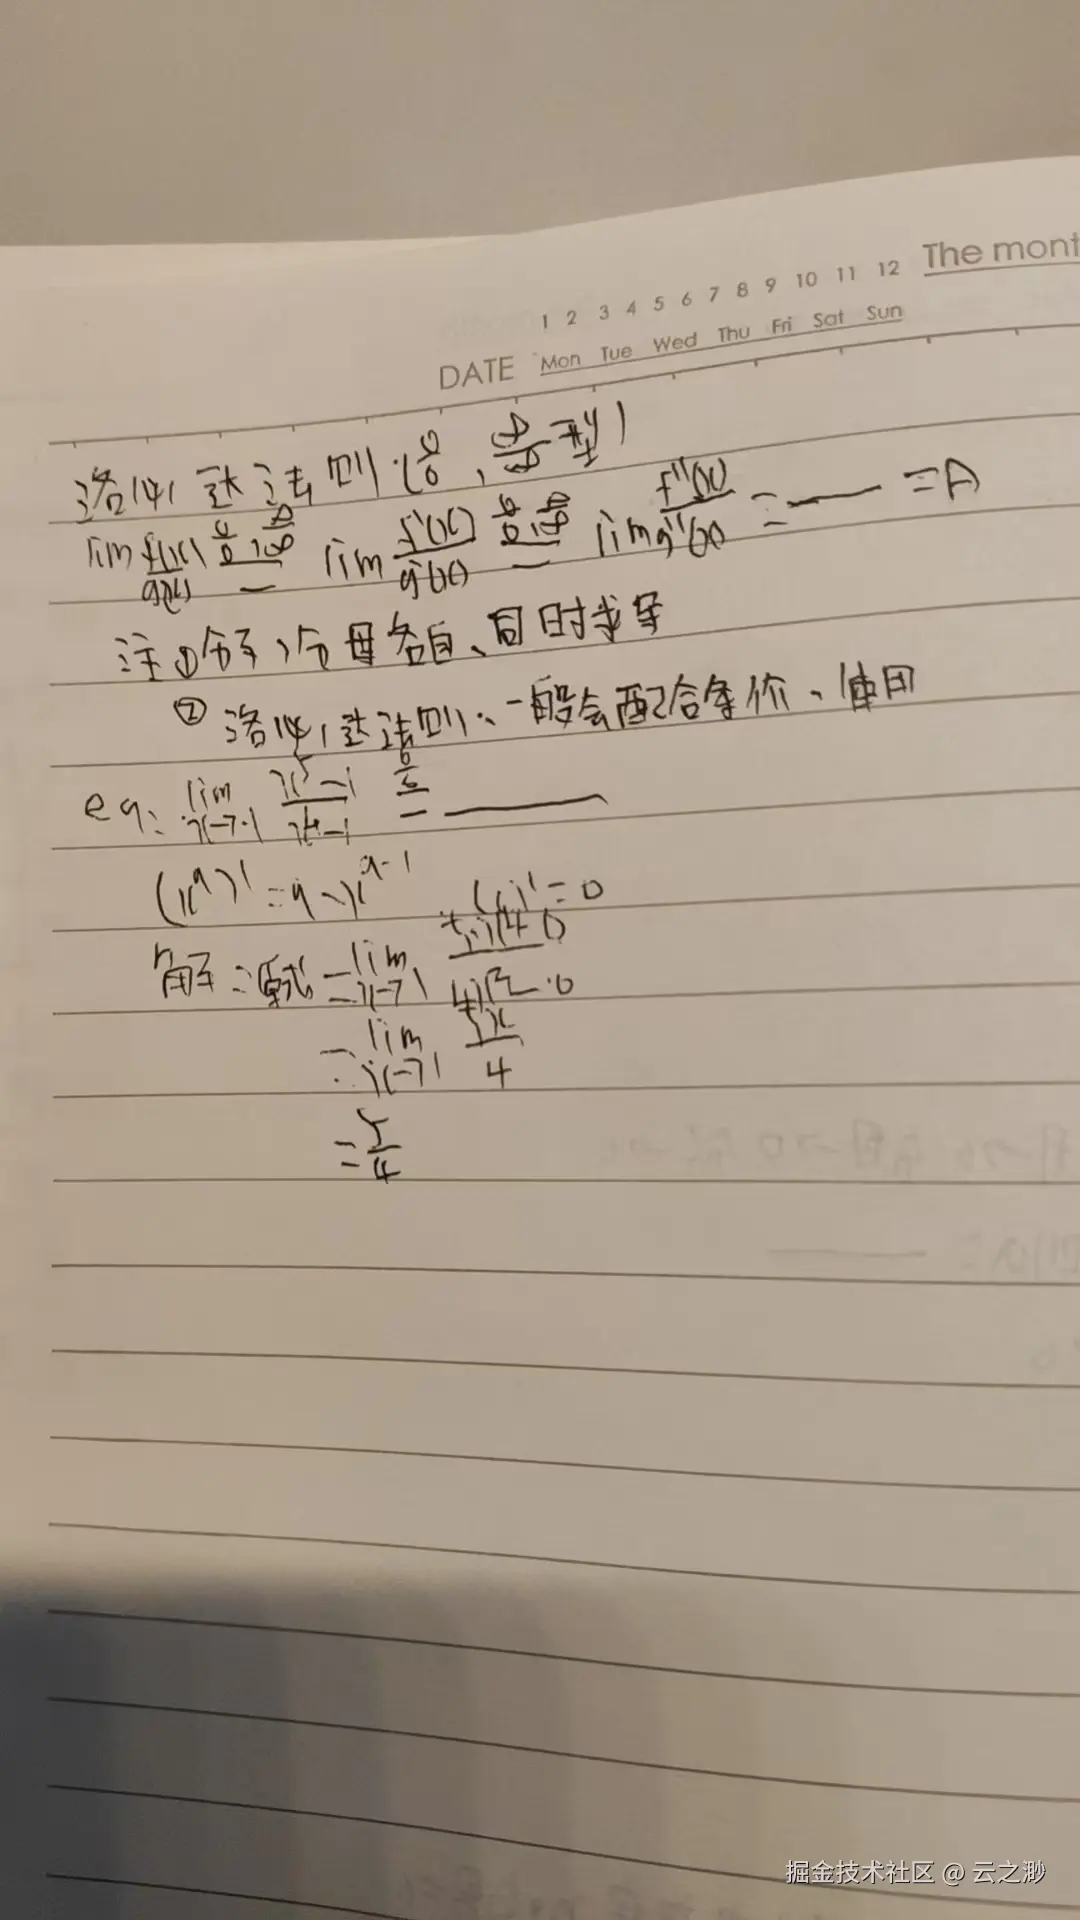 The mont
1 2 3 4 5 6 7 8 9 10 11 12
DATE Mon Tue Wed Thu Fri Sat Sun
洛必达法则:(0/0, ∞/∞型)
lim f(x)/g(x) 0/0,∞/∞ = lim f'(x)/g'(x) 0/0,∞/∞ = lim f''(x)/g''(x) = —— = A
注①分子,分母各自、同时求导
②洛必达法则:一般会配合等价、使用
eg: lim x→1 x^5-1/x^4-1 0/0 = ———
(x^a)' = a·x^(a-1) (c)' = 0
解:原式 = lim x→1 5x^4-0/4x^3-0
= lim x→1 5x/4
= 5/4
掘金技术社区 @ 云之渺